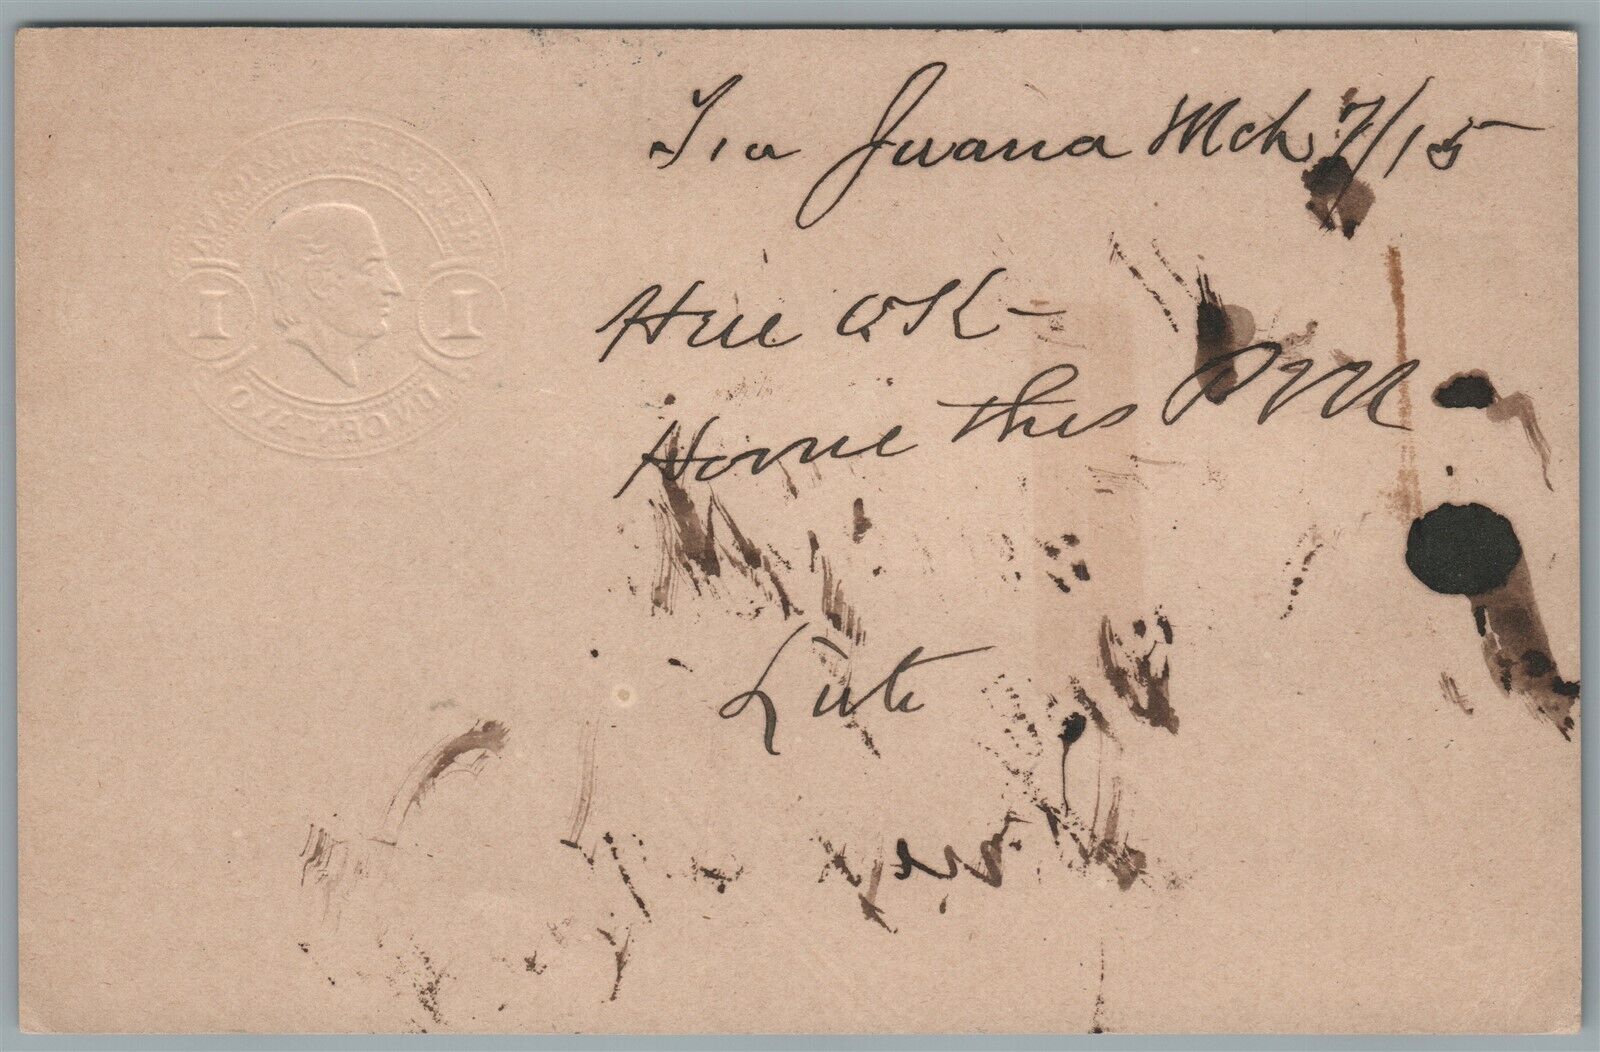 Tia Juana Mch 7/15
Here OK-
Home this PM
Lute
1 1